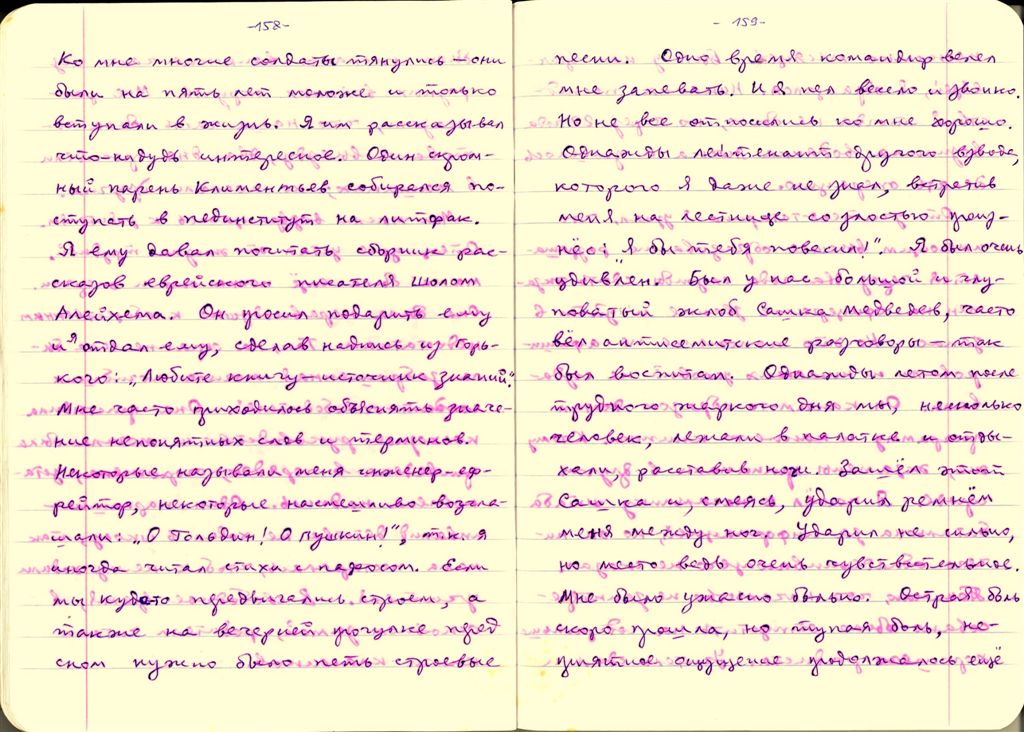 -158-
Ко мне многие солдаты тянулись – они
были на пять лет моложе и только
вступали в жизнь. Я им рассказывал
что-нибудь интересное. Один скром-
ный парень Климентьев собирался по-
ступать в пединститут на литфак.
Я ему давал почитать сборник рас-
сказов еврейского писателя Шолом
Алейхема. Он просил подарить ему
и я отдал ему, сделав надпись из Горь-
кого: „Любите книгу – источник знаний".
Мне часто приходилось объяснять значе-
ние непонятных слов и терминов.
Некоторые называли меня инженер-еф-
рейтор, некоторые насмешливо возгла-
шали: „О Гольдин! О Пушкин!", т.к. я
иногда читал стихи с пафосом. Если
мы куда-то передвигались строем, а
также на вечерней прогулке перед
сном нужно было петь строевые
-159-
песни. Одно время командир велел
мне запевать. И я пел весело и звонко.
Но не все относились ко мне хорошо.
Однажды лейтенант другого взвода,
которого я даже не знал, встретив
меня на лестнице со злостью произ-
нёс: „Я бы тебя повесил!". Я был очень
удивлен. Был у нас большой и глу-
поватый жлоб Сашка Медведев, часто
вёл антисемитские разговоры – так
был воспитан. Однажды летом после
трудного жаркого дня мы, несколько
человек, лежали в палатке и отды-
хали расставив ноги. Зашёл этот
Сашка и, смеясь, ударил ремнём
меня между ног. Ударил не сильно,
но место ведь очень чувствительное.
Мне было ужасно больно. Острая боль
скоро прошла, но тупая боль, не-
приятное ощущение продолжалось ещё